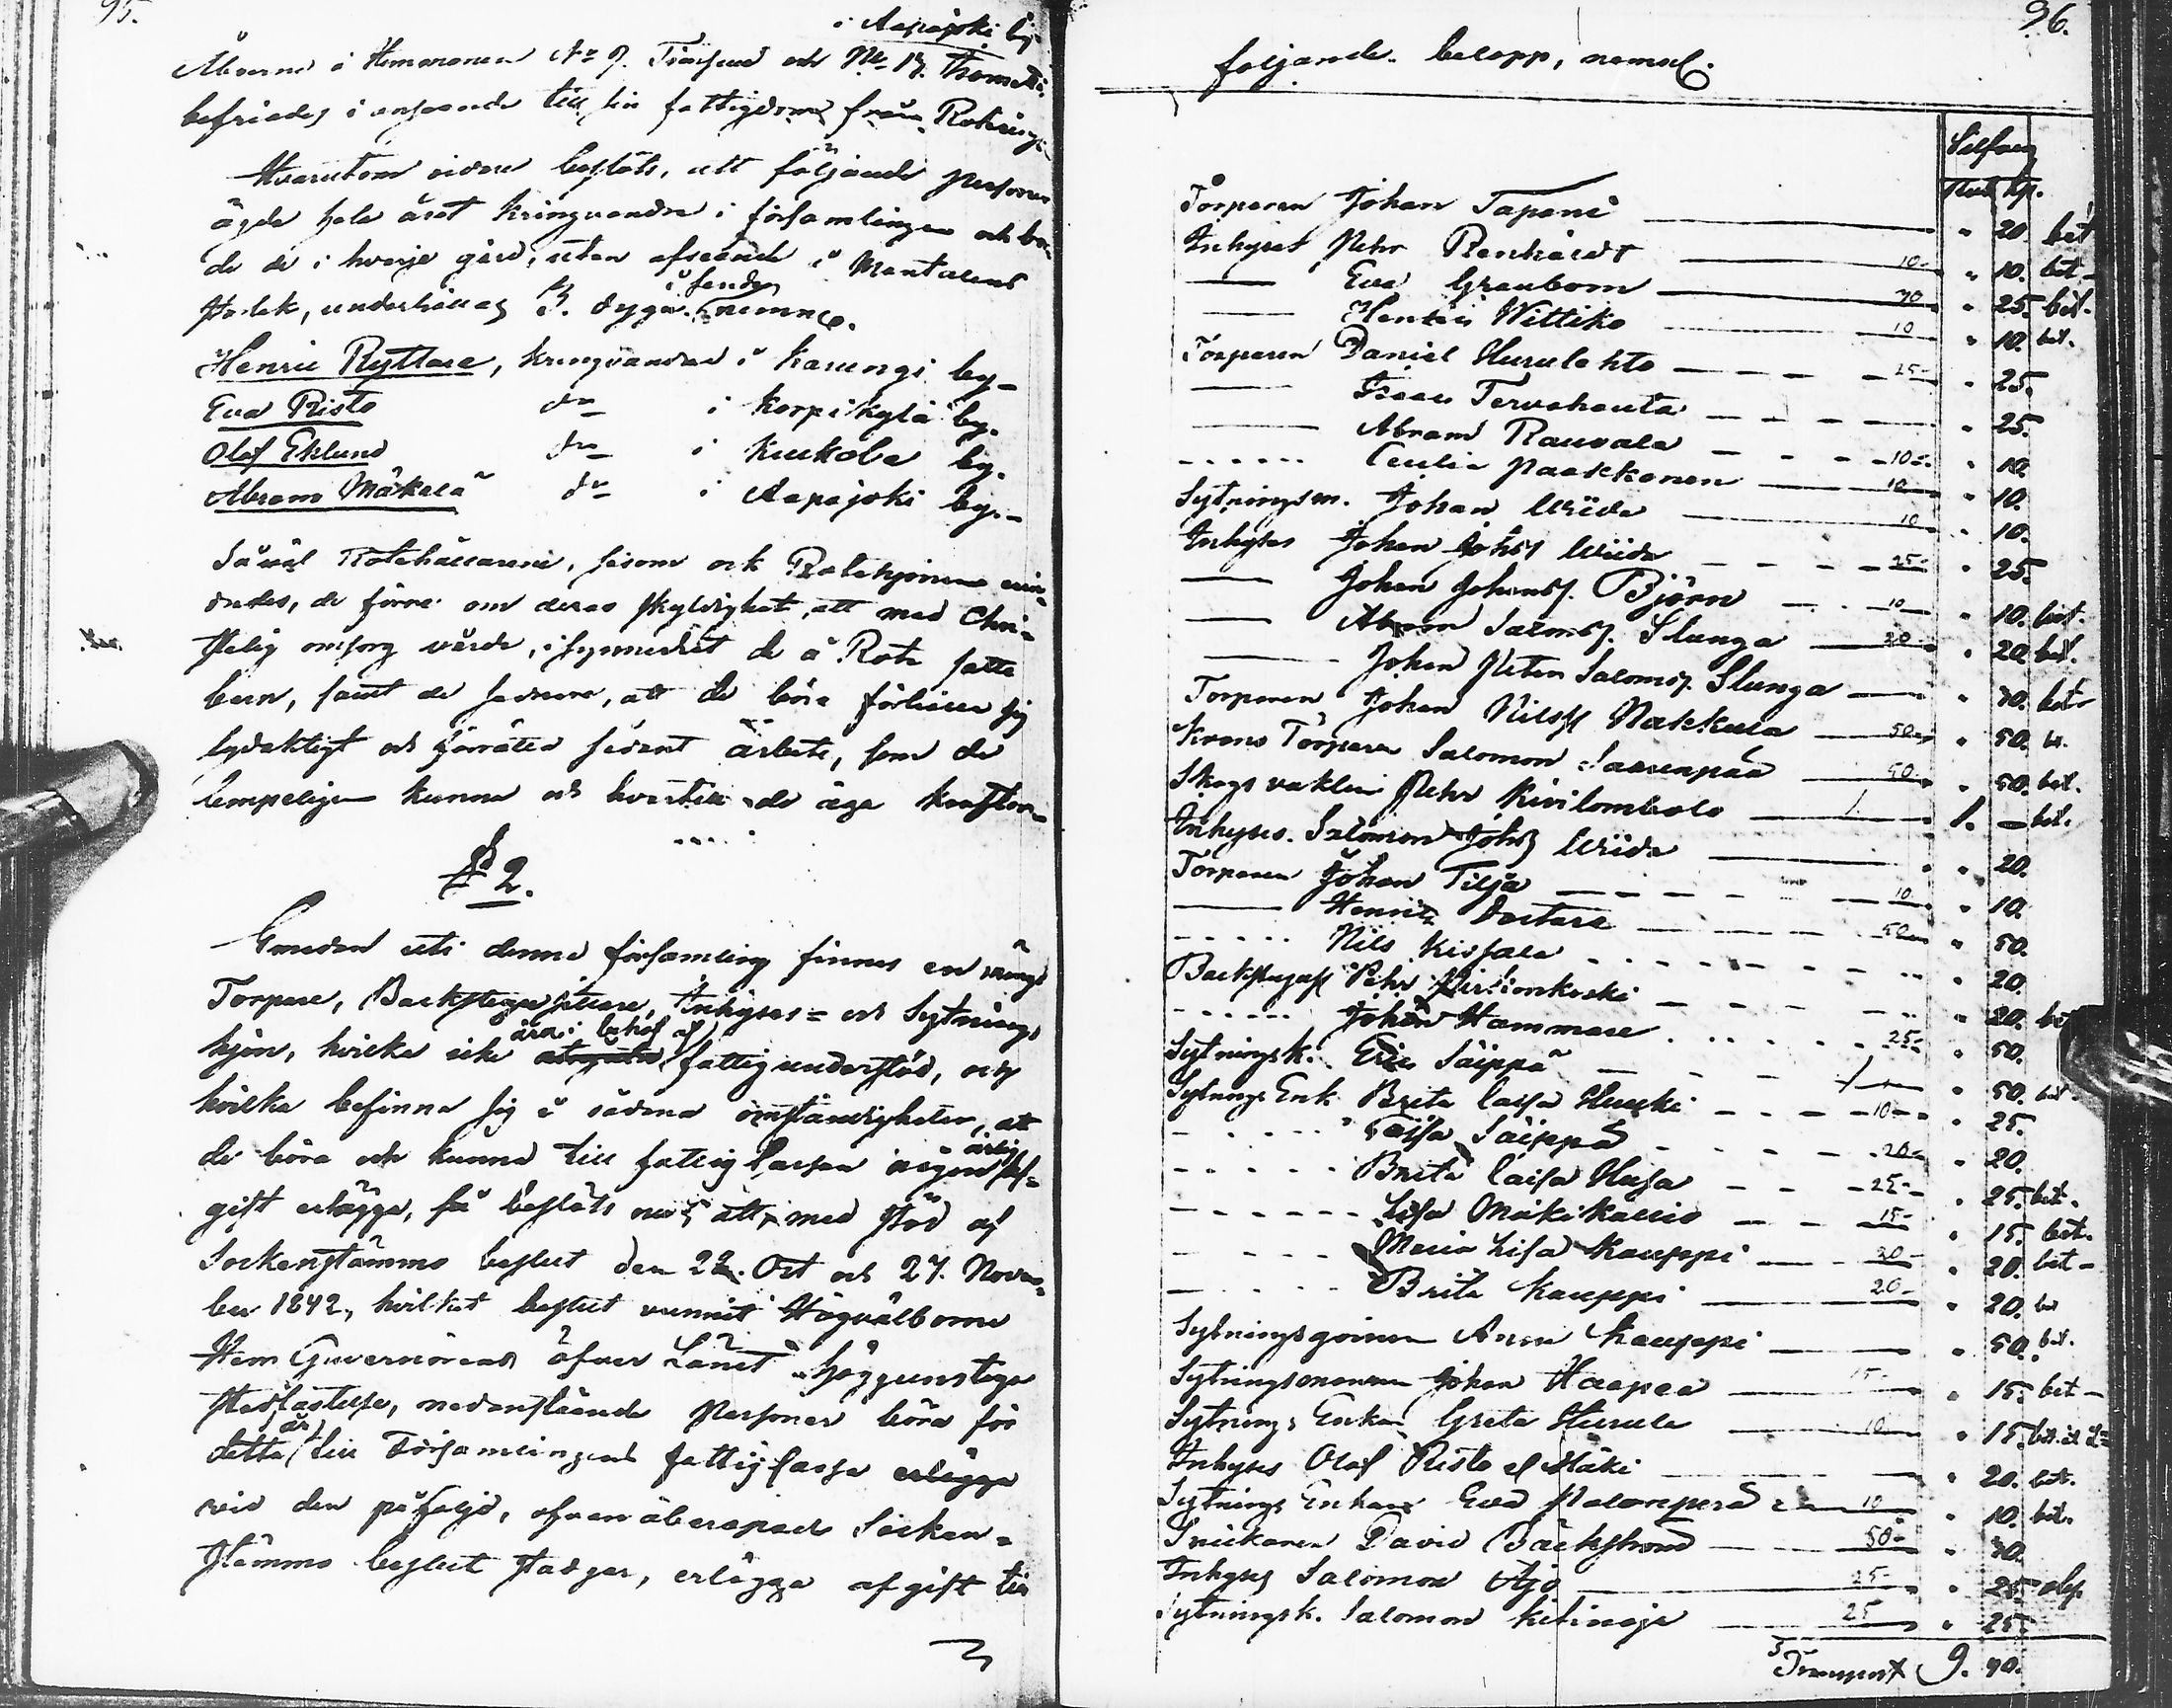 95.
i Aapajoki by
Åboerne i Hemmanen No 9. och No 17. Thomatti
befriades i anseende till sin fattigdom från Rotehåll
Hvarutom vidare beslöts, att följande personer
ägde hela året kringvandra i församlingen och bör
de de i hvarje gård, utan afseende å Mantalens
storlek, underhållas 3. dygn. nemnl.
Henric Ryttare, kringvandrar i Karungi by
Eva Risto do i Korpikylä by.
Olof Eklund do i Kukkola by.
Abram Mäkelä do i Aapajoki by.
Såväl Rotehållarene, såsom ock Rotehjonen erin-
drades, de förre om deras skyldighet, att med Chri-
stelig omsorg vårda, i synnerhet de å Rote satte
barn, samt de sednare, att de böra förhålla sig
lydaktigt och förrätta sådant arbete, som de
lämpeligen kunna och hvartill de äga krafter
§ 2.
Emedan uti denna församling finnes en mängd
Torpare, Backstugusittare, Inhyses- och Sytnings
hjon, hvilka icke äro i behof af fattigunderstöd, och
hvilka befinna sig i sådana omständigheter, att
de böra och kunna till fattig Cassan någon årlig af-
gift erlägga, så beslöts nu, att, med stöd af
Sockenstämmo beslut den 22. Oct och 27. Novem-
ber 1842, hvilket beslut vunnit Högvälborne
Herr Guvernörens öfver Länet höggunstiga
stadfästelse, nedanstående personer böra för
detta år till Församlingens fattigcassa erlägga
vid den påföljd, ofvanåberopade Socken-
stämmo beslut stadgar, erlägga afgift till
96.
följande belopp, nemnl.
Silfver
kp.
Torparen Johan Tapani " 20 bet
Inhyses Pehr Renhardt 10 " 10. bet
Eva Granbom 30 " 25 bet.
Wittiko 10 " 10. bet.
Torparen Daniel Hurulehto 25 " 25.
Isaac Tervahauta " 25.
Abram Rauvala 10 " 10.
Cecilia Paakkonen 10 " 10.
Sytningsm. Johan Wiida 10 " 10.
Inhyses Johan Johss Wiida 25 " 25.
Johan Johanss. Björn 10 " 10. bet.
Abram Salomss. Slunga 20 " 20 bet.
Johan Peter Salomss. Slunga " 30. bet
Torparen Johan Nilss Nakkula 50 " 50. bet.
Krono Torparen Salomon Saarenpää 50 " 50. bet.
Skogsvaktaren Pehr Kivilombolo 1. 1. — bet.
Inhyses. Salomon Johss Wiida " 20.
Torparen Johan Tilja 10 " 10.
Henric 50 " 50.
Nils " 20.
Backstugus Pehr " 20. bet
Johan Hammare 25 " 50.
Sytningsk. Eric Säippä " 50. bet.
Sytnings Enk. Brita Caisa Huuki 10 " 25.
Caisa Säippä 20 " 20.
Brita Caisa Husa 25 " 25. bet.
Lisa Mäkikallio 15 " 15. bet.
Maria Lisa Kauppi 20 " 20. bet
Brita Kauppi 20 " 20. bet
Sytningsqvinnan Anna Kauppi " 50. bet.
Sytningsmannen Johan Haapaa 15 " 15. bet
Sytnings Enkan Greta Hurula 10 " 15. bet.
Inhyses Olof Risto el Mäki " 20. bet.
Sytnings Enkan Eva Palovaperä 10 " 10. bet.
Snickaren David Bäckström 50 " 30.
Inhyses Salomon Ajo 25 " 25.
Sytningsk. Salomon 25 " 25.
Transport 9. 90.